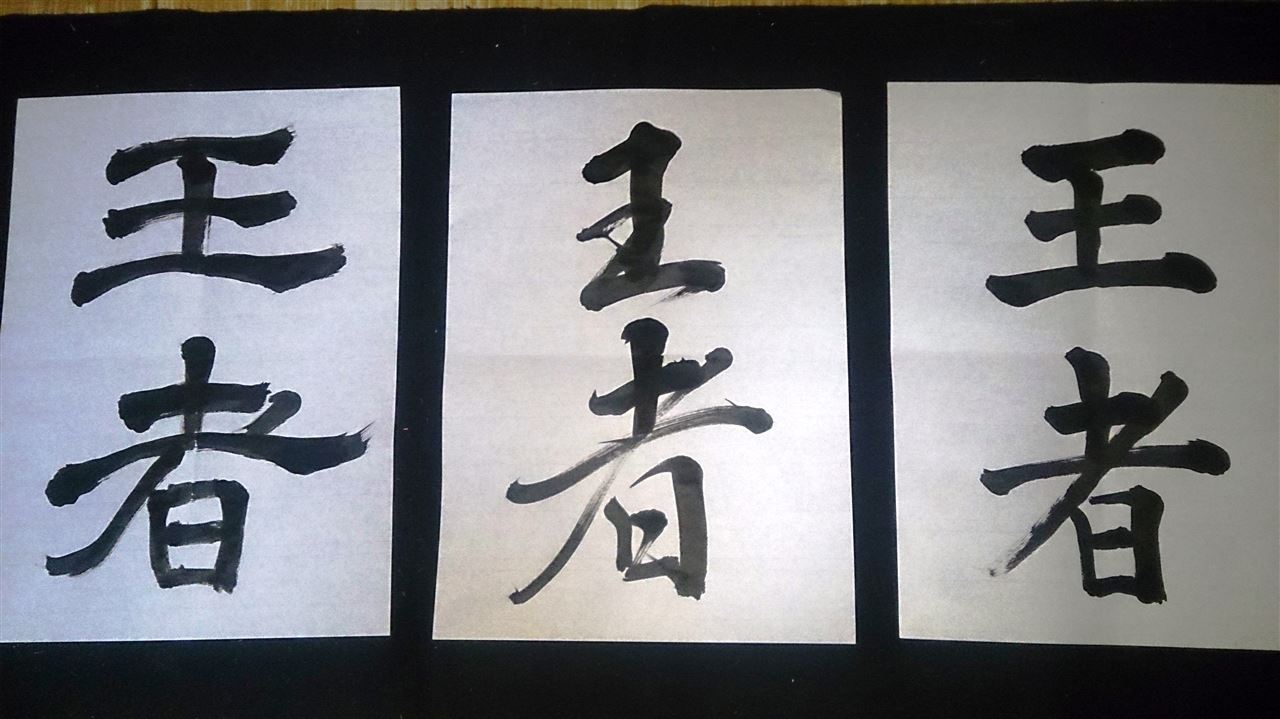 王者
王者
王者